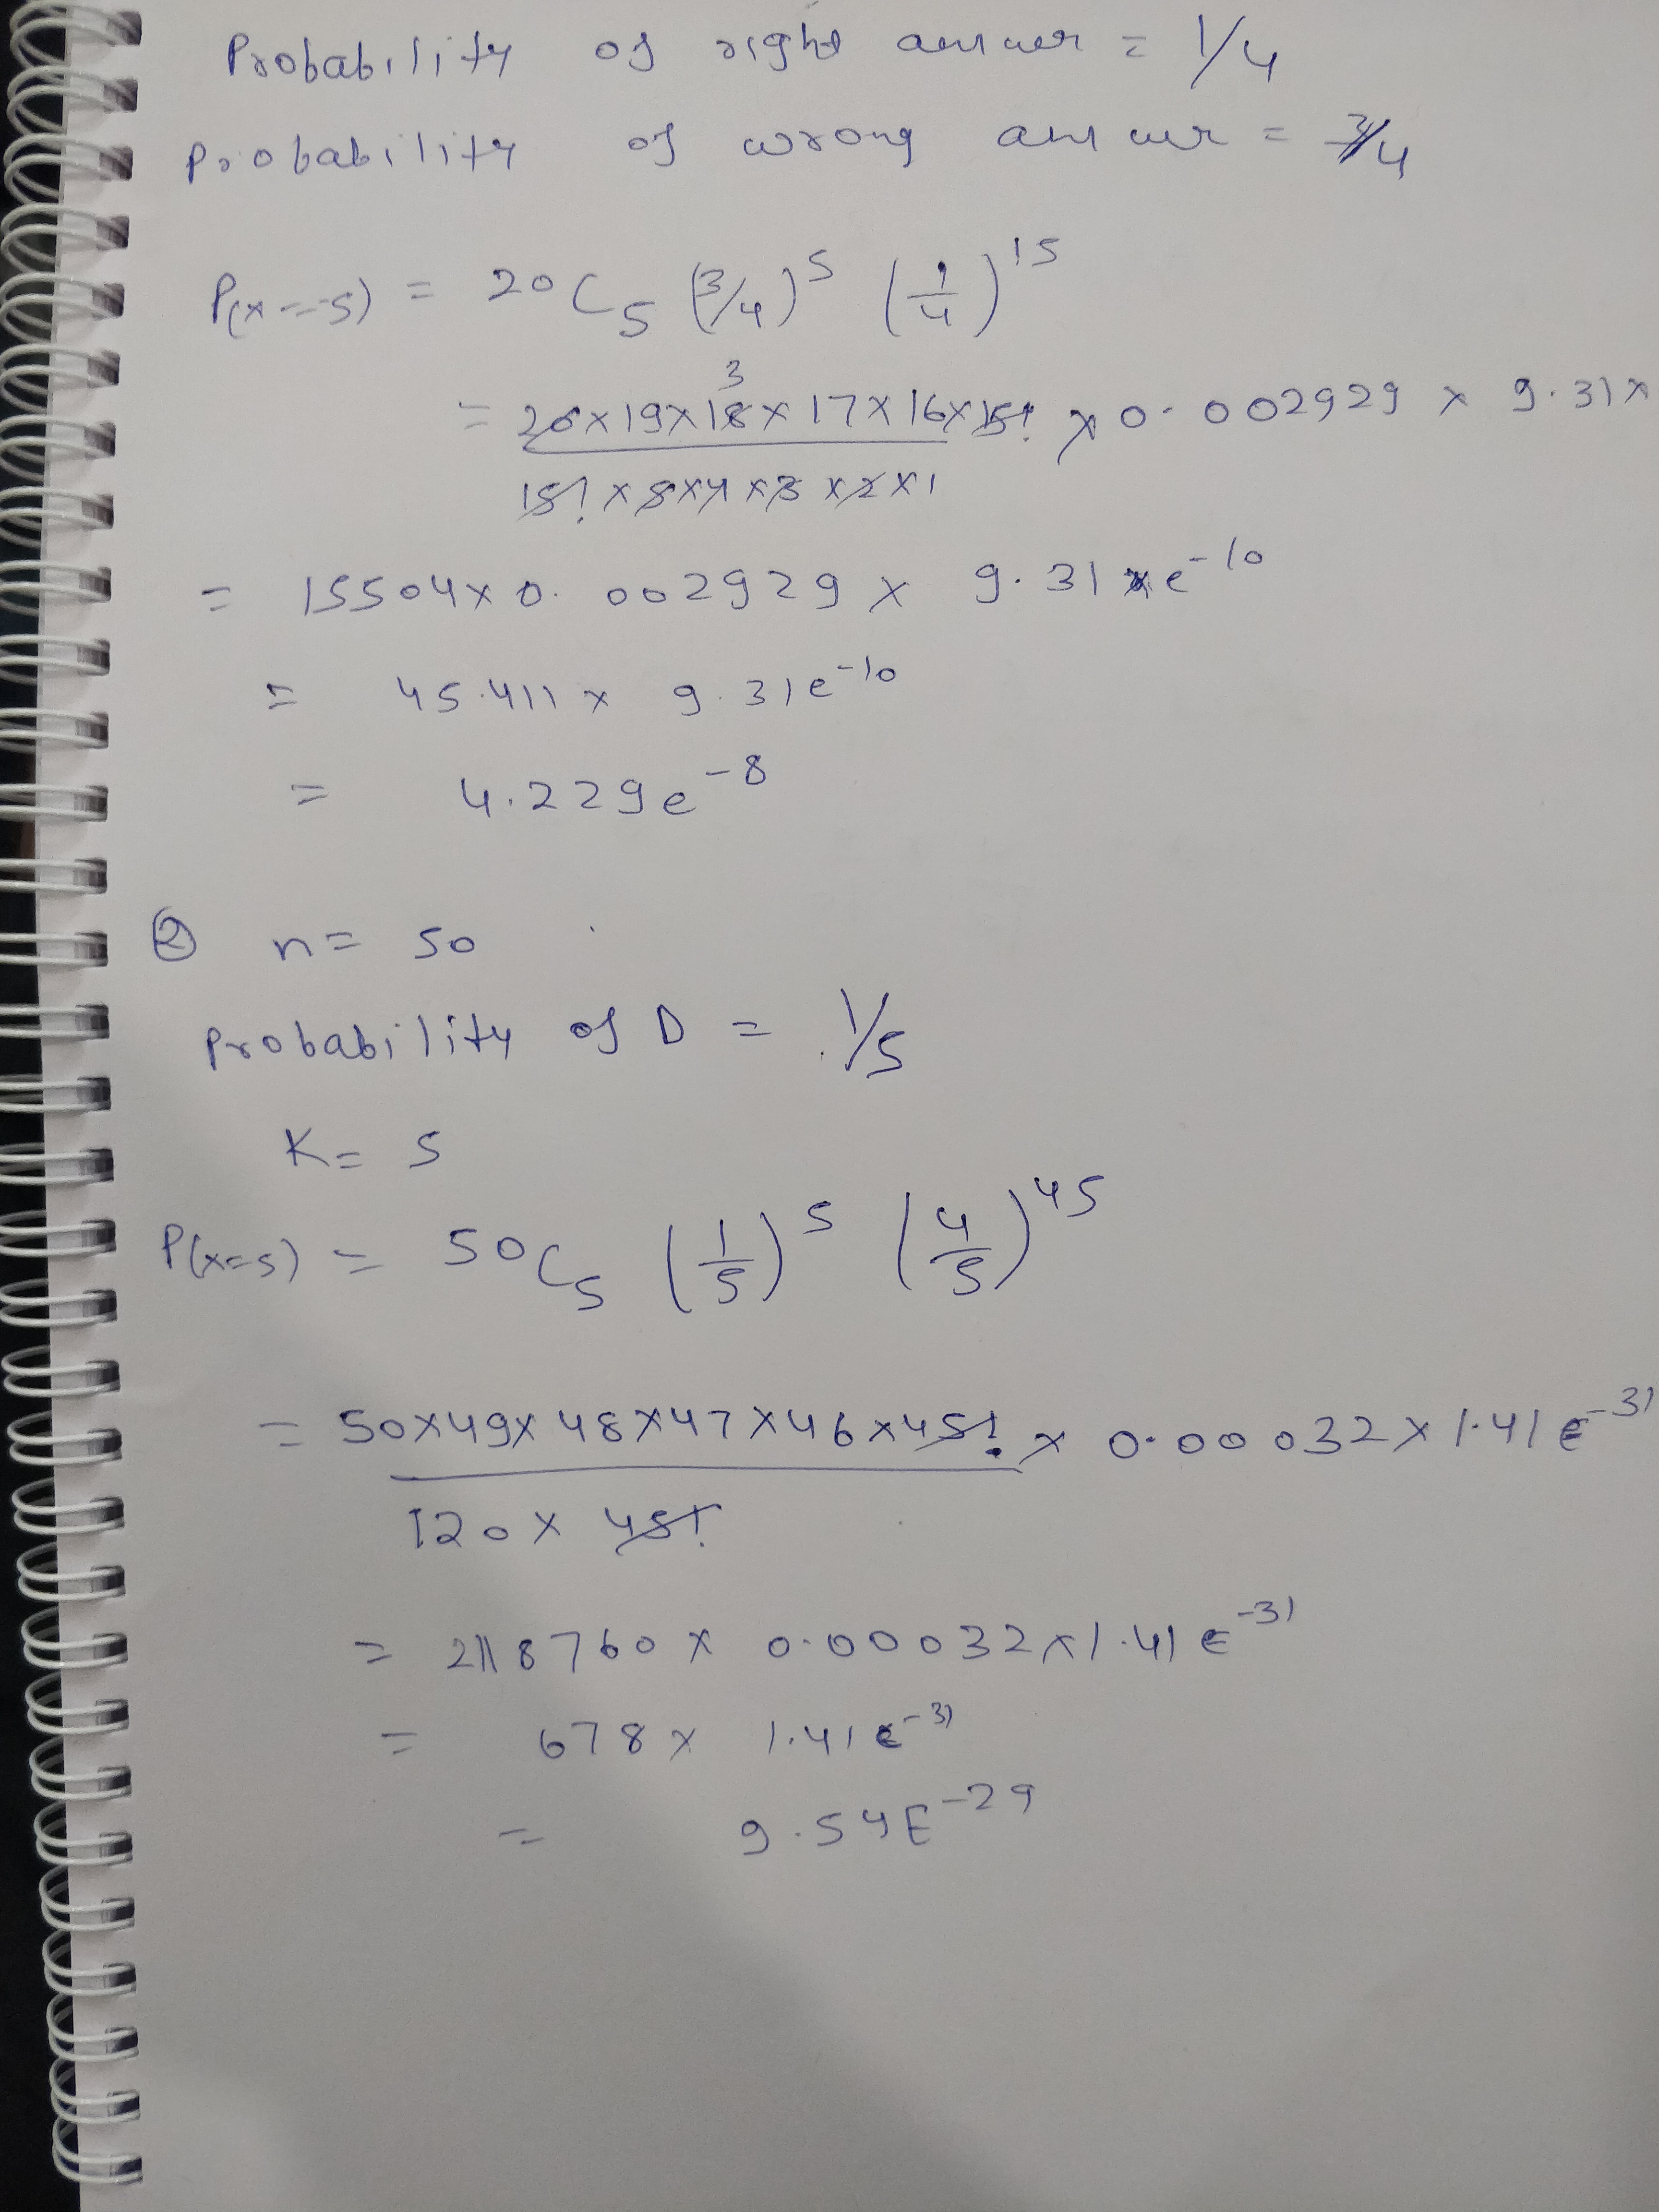 Probability of right answer = 1/4
Probability of wrong answer = 3/4
P(x=5) = 20C5 (3/4)^5 (1/4)^15
3
= 20×19×18×17×16×15! × 0.002929 × 9.31×
15! × 5×4×3×2×1
= 15504×0.002929 × 9.31 e^-10
= 45.411 × 9.31e^-10
= 4.229e^-8
② n= 50
Probability of D = 1/5
K= 5
P(x=5) = 50C5 (1/5)^5 (4/5)^45
= 50×49×48×47×46×45! × 0.00032×1.41E^-31
120× 45!
= 2118760 × 0.00032×1.41E^-31
= 678× 1.41E^-31
= 9.54E^-29